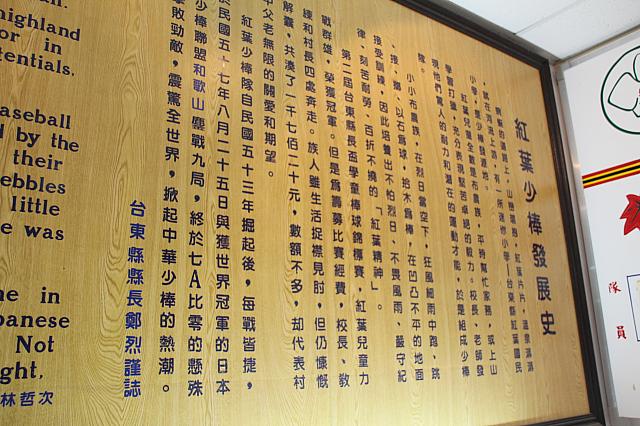 紅葉少棒發展史
東縣的道路上，山巒
，就在河溫上游，有一所迷你小學—台東縣紅葉國民
小學—是少棒發源地。
紅葉兒童全數是布農族，平時幫忙家務，或上山
學習打獵，充分表現堅苦卓絕的毅力。校長、老師發
現他們驚人的耐力和潛在的運動才能，於是組成少棒
隊。
小小布農族，在烈日當空下，狂風細雨中跑、跳
、接、擲，以石為球，拾木為棒，在凹凸不平的地面
接受訓練，因此培養出不怕烈日、不畏風雨、嚴守紀
律、刻苦耐勞、百折不撓的「紅葉精神」。
第二屆台東縣長盃學童棒球錦標賽，紅葉兒童力
戰群雄，榮獲冠軍。但是為籌募比賽經費，校長、教
練和村長四處奔走。族人雖生活捉襟見肘，但仍慷慨
解囊，共湊了一千七佰二十元，數額不多，却代表村
中父老無限的關愛和期望。
紅葉少棒隊自民國五十三年掘起後，每戰皆捷，
於民國五十七年八月二十五日與獲世界冠軍的日本
少棒聯盟和歌山鏖戰九局，終於七A比零的懸殊
擊敗勁敵，震驚全世界，掀起中華少棒的熱潮。
台東縣縣長鄭烈謹誌
highland
or in
otentials.
aseball
d by the
their
ebbles
little
e was
ne in
panese
Not
ght,
林哲次
隊
員